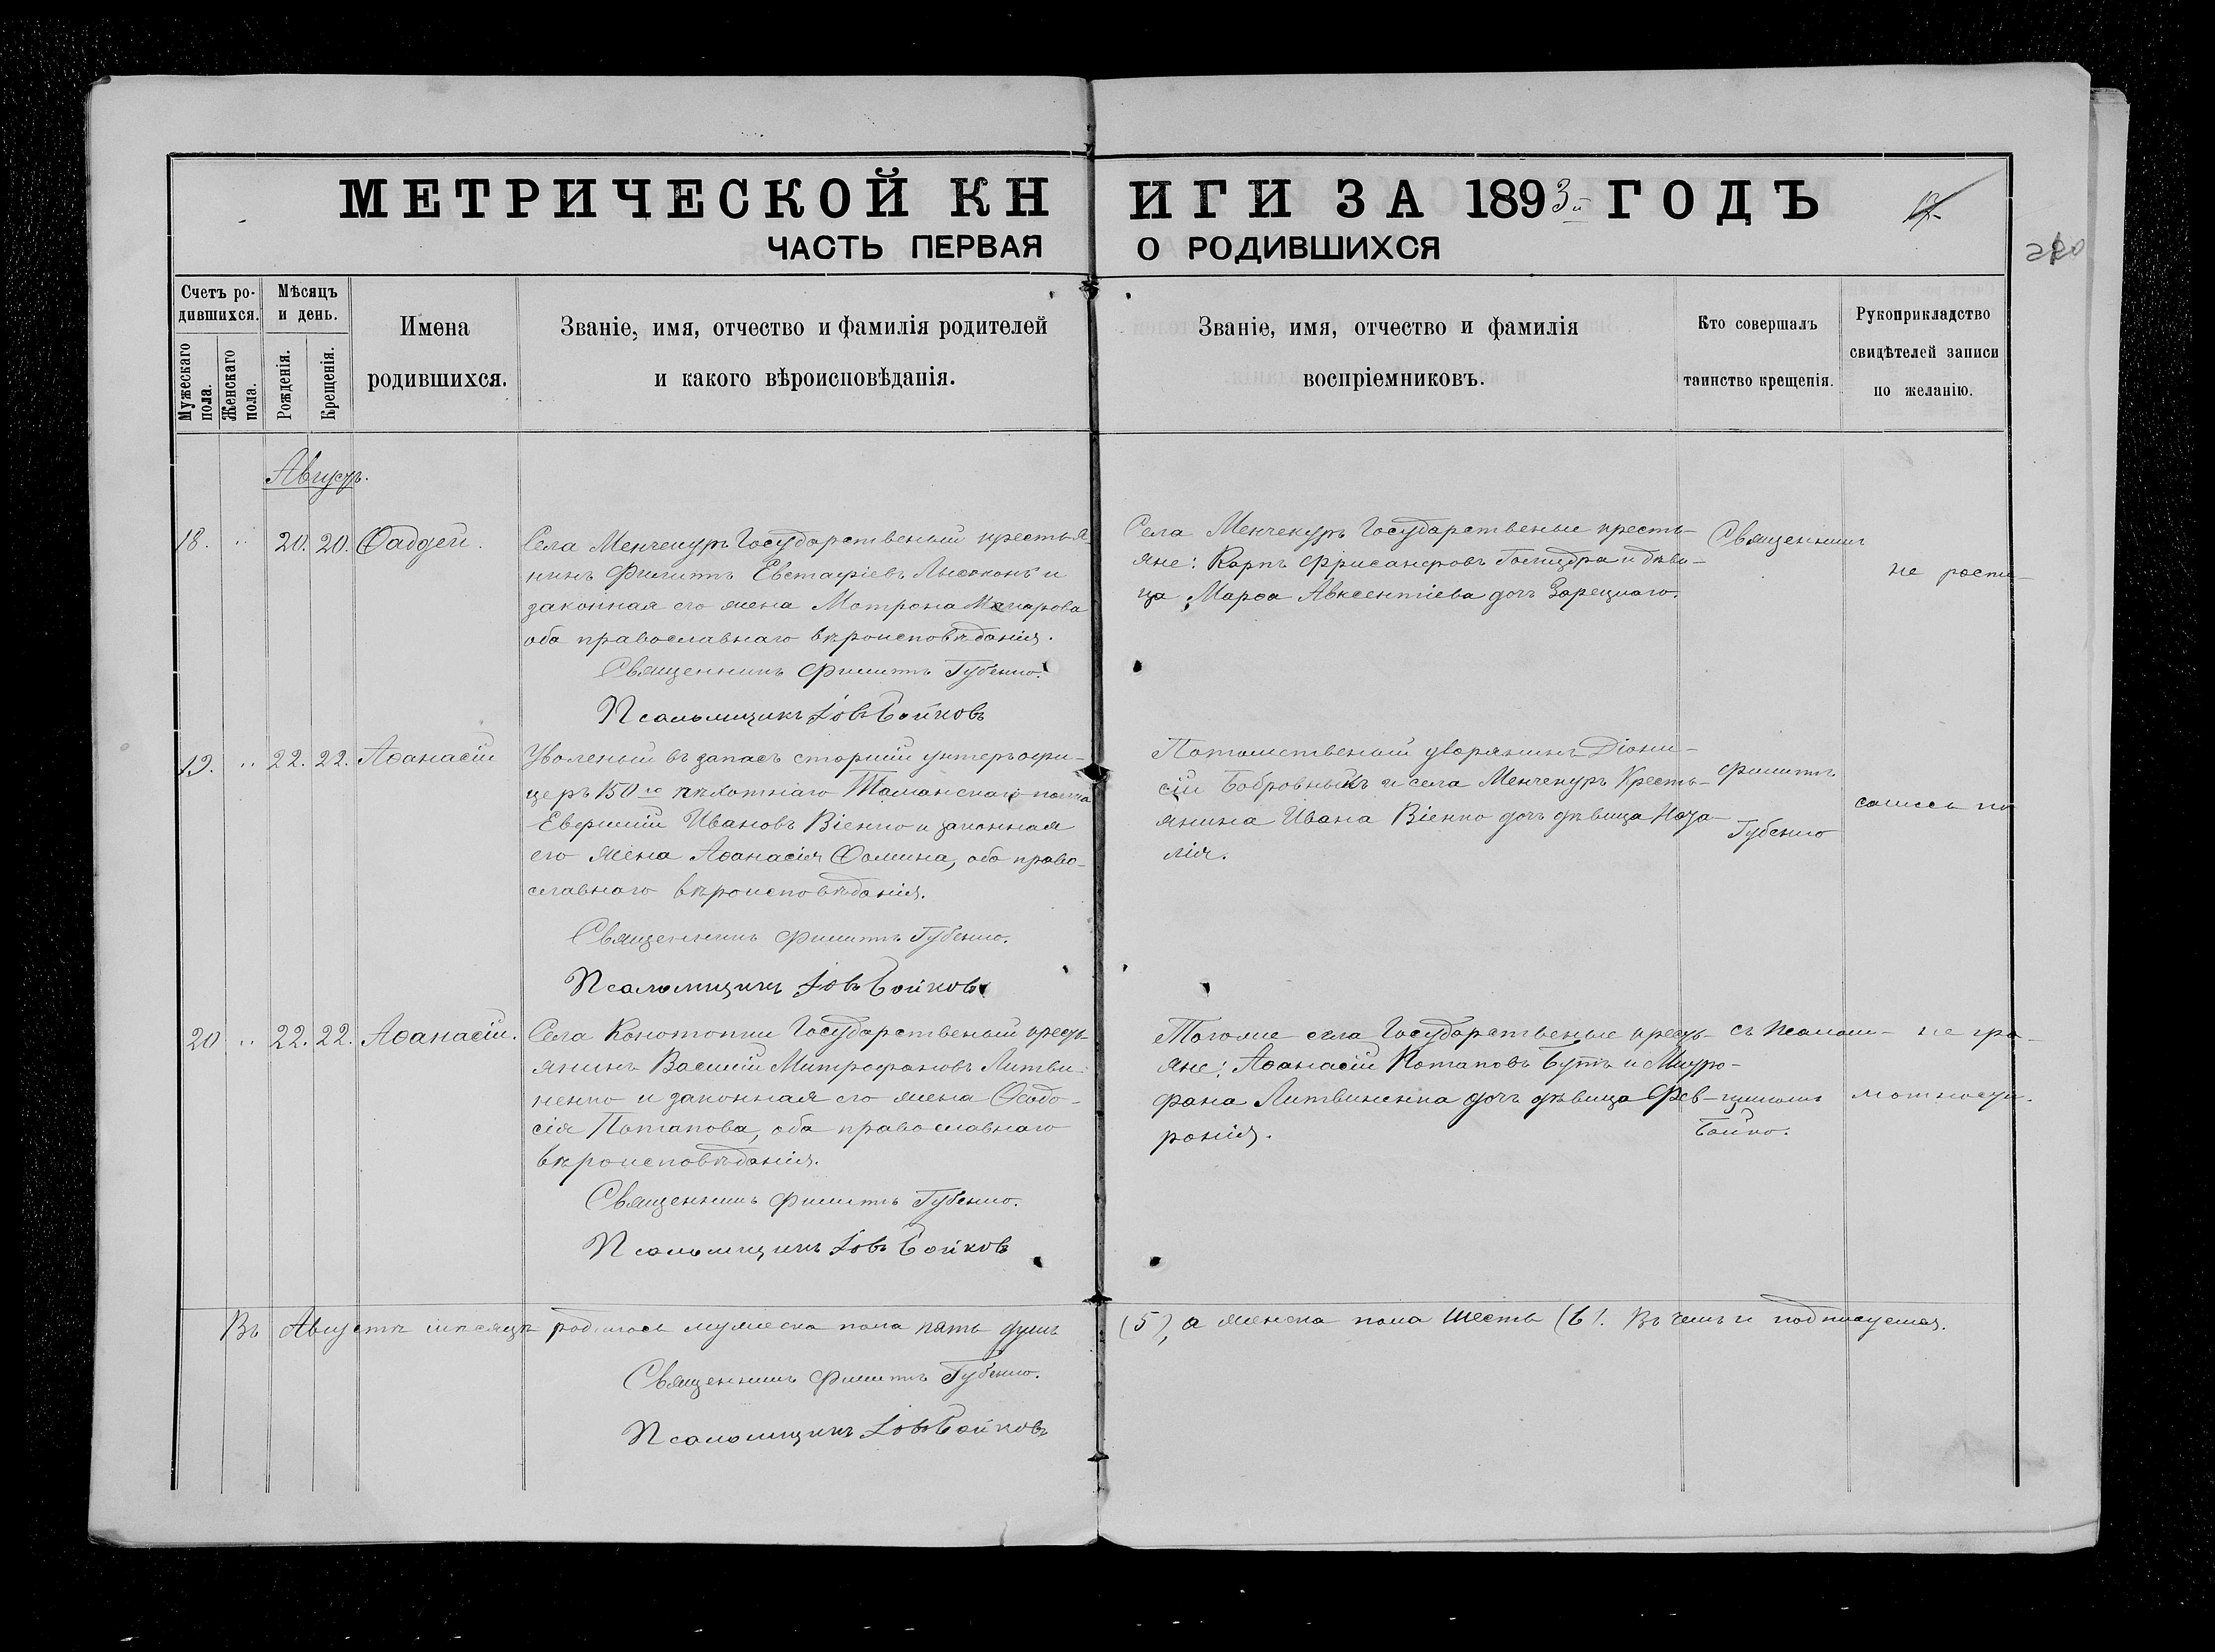 МЕТРИЧЕСКОЙ КНИГИ ЗА 1893й ГОДЪ
ЧАСТЬ ПЕРВАЯ О РОДИВШИХСЯ
Счетъ ро-
дившихся.
Мужескаго
пола.
Женскаго
пола.
Мѣсяцъ
и день.
Рожденія.
Крещенія.
Имена
родившихся.
Званіе, имя, отчество и фамилія родителей
и какого вѣроисповѣданія.
Званіе, имя, отчество и фамилія
воспріемниковъ.
Кто совершалъ
таинство крещенія.
Рукоприкладство
свидѣтелей записи
по желанію.
Августъ.
18. 20. 20. Ѳадден.
Села Менчекуръ Государственый крестья-
нинъ Филиппъ Евстафіевъ и
законная его жена Матрона Макарова
оба православнаго вѣроисповѣданія.
Священникъ Филиппъ Губенко.
Псаломщикъ Іовъ Бойковъ
Села Менчекуръ Государственые кресть-
яне: Карпъ и дѣви-
ца Марѳа Авксентіева дочь Зарецкаго.
Священникъ
не роспи-
19. 22. 22. Аѳанасій
Уволеный въ запасъ старшій унтеръ офи-
церъ 150го пѣхотнаго Таманскаго полка
Евфимій Ивановъ Віенко и законная
его жена Аѳанасія Ѳомина, оба право-
славнаго вѣроисповѣданія.
Священникъ Филиппъ Губенко.
Псаломщикъ Іовъ Бойковъ
Потомственый дворянинъ Діони-
сій Бобровныкъ и села Менчекуръ Кресть-
янина Ивана Віенко дочь дѣвица Ната-
лія.
Филиппъ
Губенко
сались по
20 22. 22. Аѳанасій.
Села Конотопки Государственый крест-
янинъ Василій Митрофановъ Литви-
ненко и законная его жена Ѳеодо-
сія Потапова, оба православнаго
вѣроисповѣданія.
Священникъ Филиппъ Губенко.
Псаломщикъ Іовъ Бойковъ
Тогоже села Государственые крест-
яне: Аѳанасій Потаповъ Бутъ и Митро-
фана Литвиненка дочь дѣвица Фев-
ронія.
съ Псалом-
щикомъ
Бойко.
не гра-
мотности.
Въ Августѣ мѣсяцѣ родилось мужеска пола пять душъ (5), а женска пола шесть (6). Въ чемъ и подписуемся.
Священникъ Филиппъ Губенко.
Псаломщикъ Іовъ Бойковъ